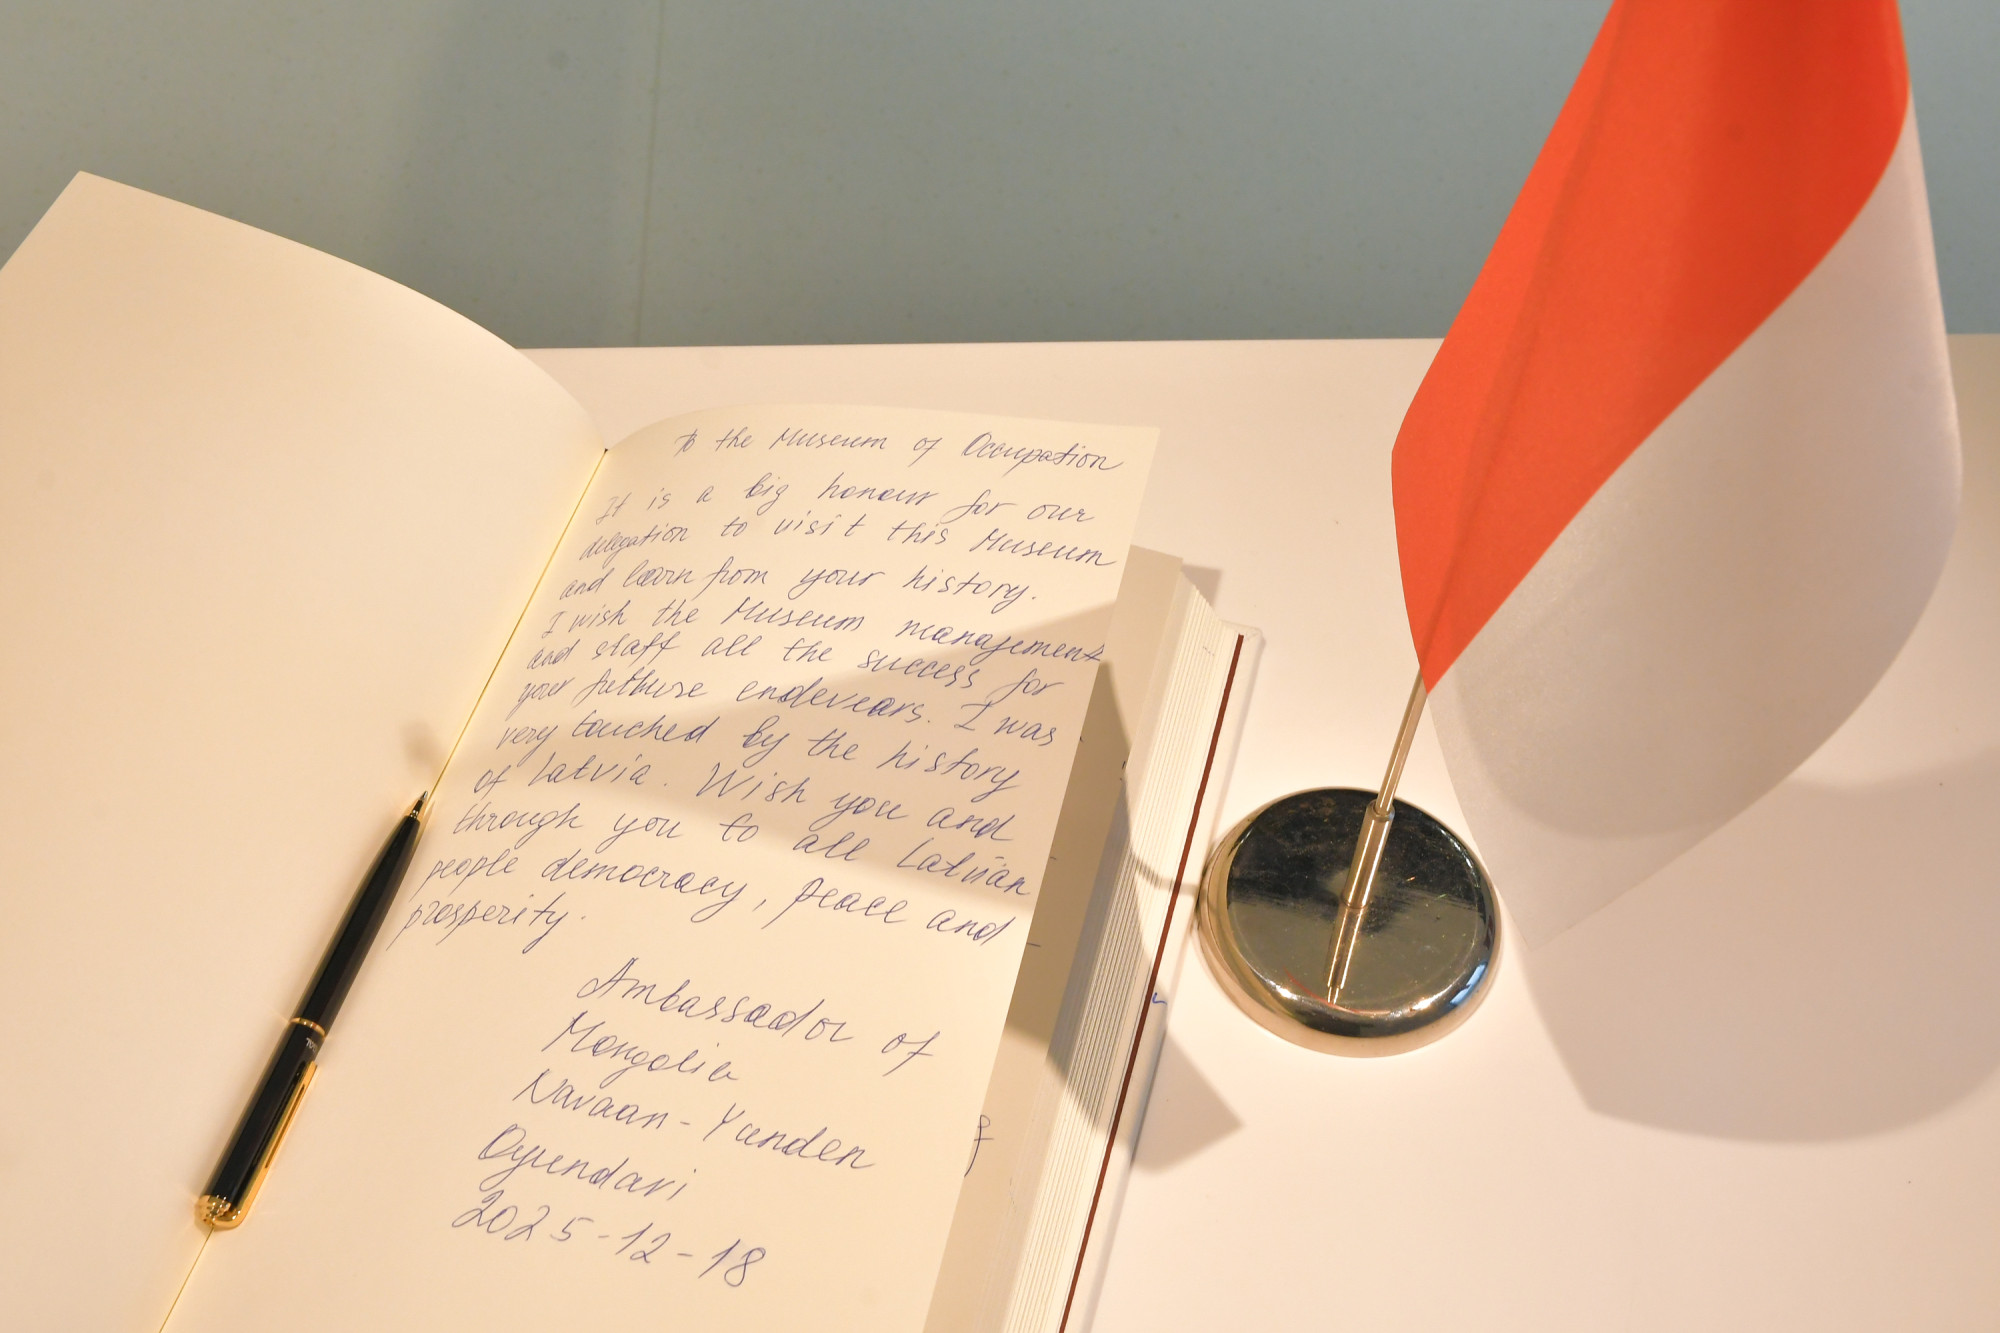 To the Museum of Occupation
It is a big honour for our
delegation to visit this Museum
and learn from your history.
I wish the Museum management
and staff all the success for
your futhure endevears. I was
very touched by the history
of Latvia. Wish you and
through you to all Latvian
people democracy, peace and
prosperity.
Ambassador of
Mongolia
Navaan-Yunden
Oyundari
2025-12-18